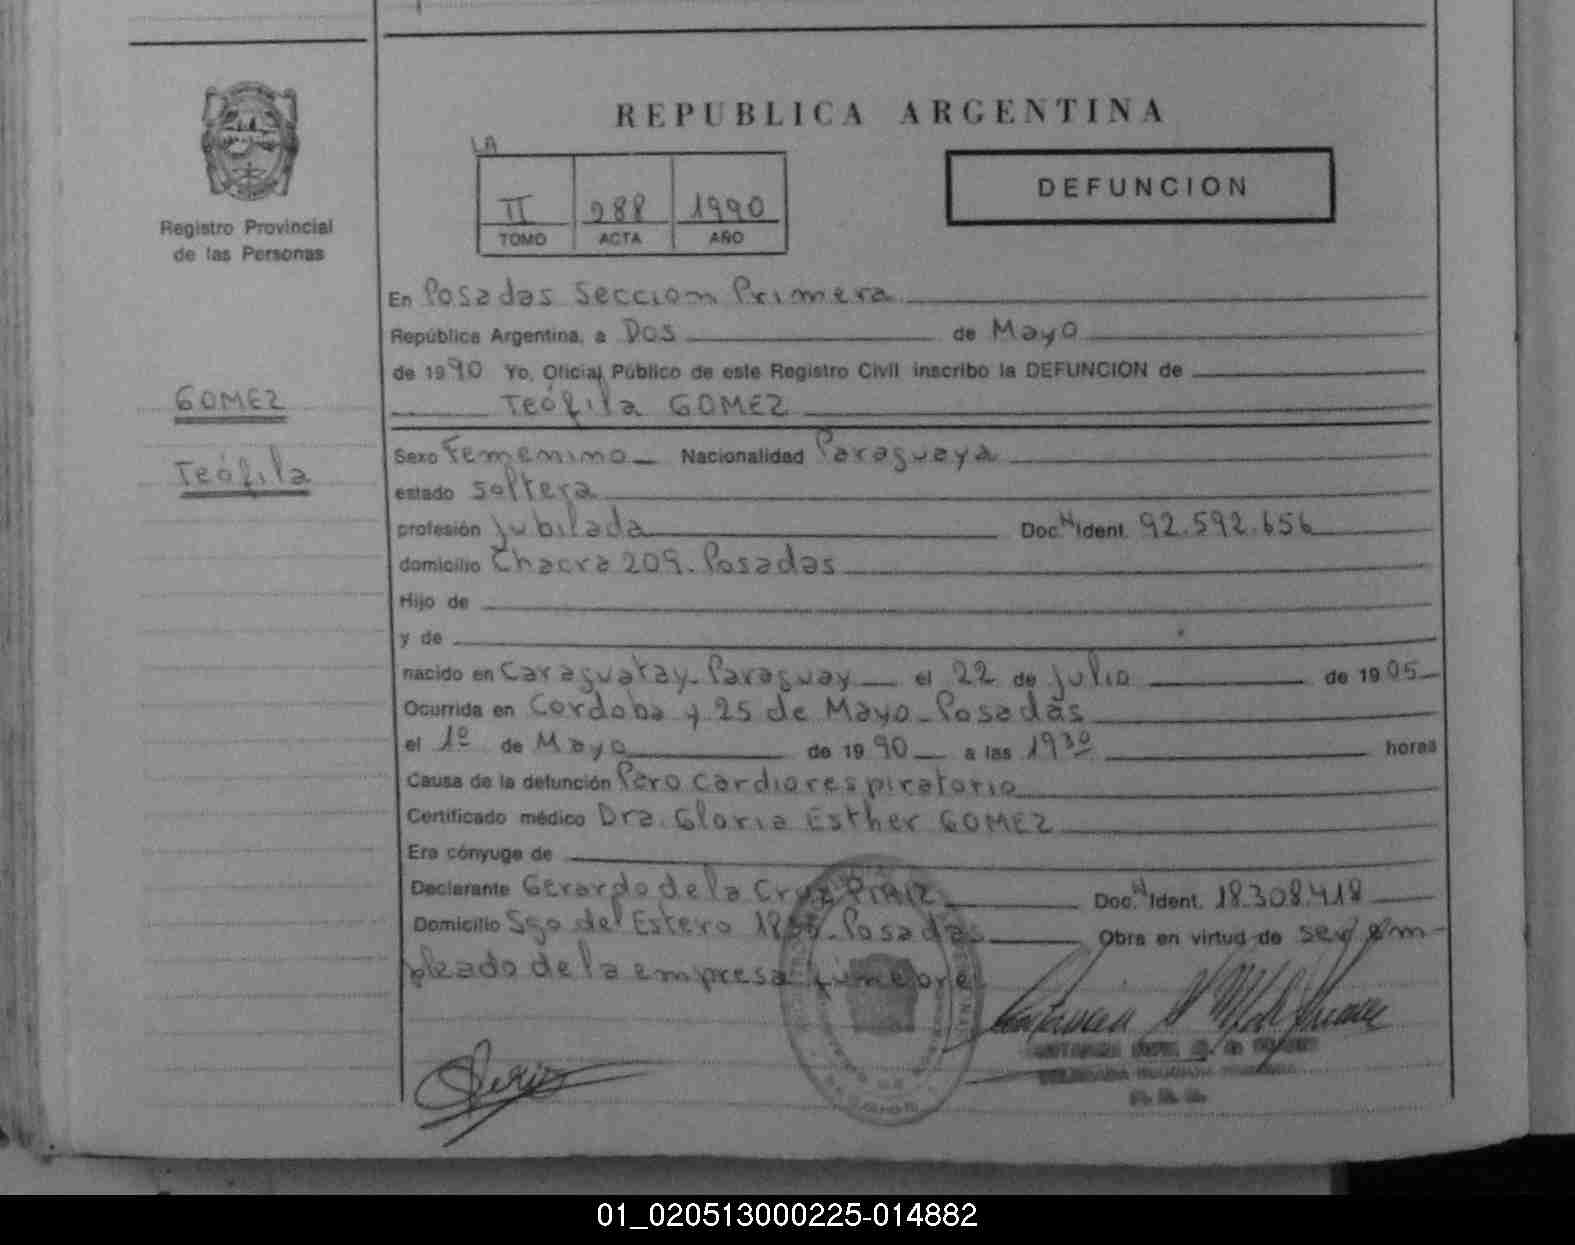 REPUBLICA ARGENTINA
LA
II 288 1990
TOMO ACTA AÑO
DEFUNCION
Registro Provincial
de las Personas
GOMEZ
Teófila
En Posadas Seccion Primera
República Argentina, a Dos de Mayo
de 1990 Yo, Oficial Público de este Registro Civil inscribo la DEFUNCION de
Teófila GOMEZ
Sexo Femenino Nacionalidad Paraguaya
estado Soltera
profesión Jubilada Doc. N Ident. 92.592.656
domicilio Chacra 209. Posadas
Hijo de
y de
nacido en Caraguatay. Paraguay el 22 de Julio de 1905
Ocurrida en Cordoba y 25 de Mayo - Posadas
el 1º de Mayo de 1990 a las 19 30 horas
Causa de la defunción Paro Cardiorespiratorio
Certificado médico Dra. Gloria Esther GOMEZ
Era cónyuge de
Declarante Gerardo de la Cruz Doc. N Ident. 18.308.418
Domicilio Sgo del Estero - Posadas Obra en virtud de ser em-
pleado de la empresa funebre
01_020513000225-014882